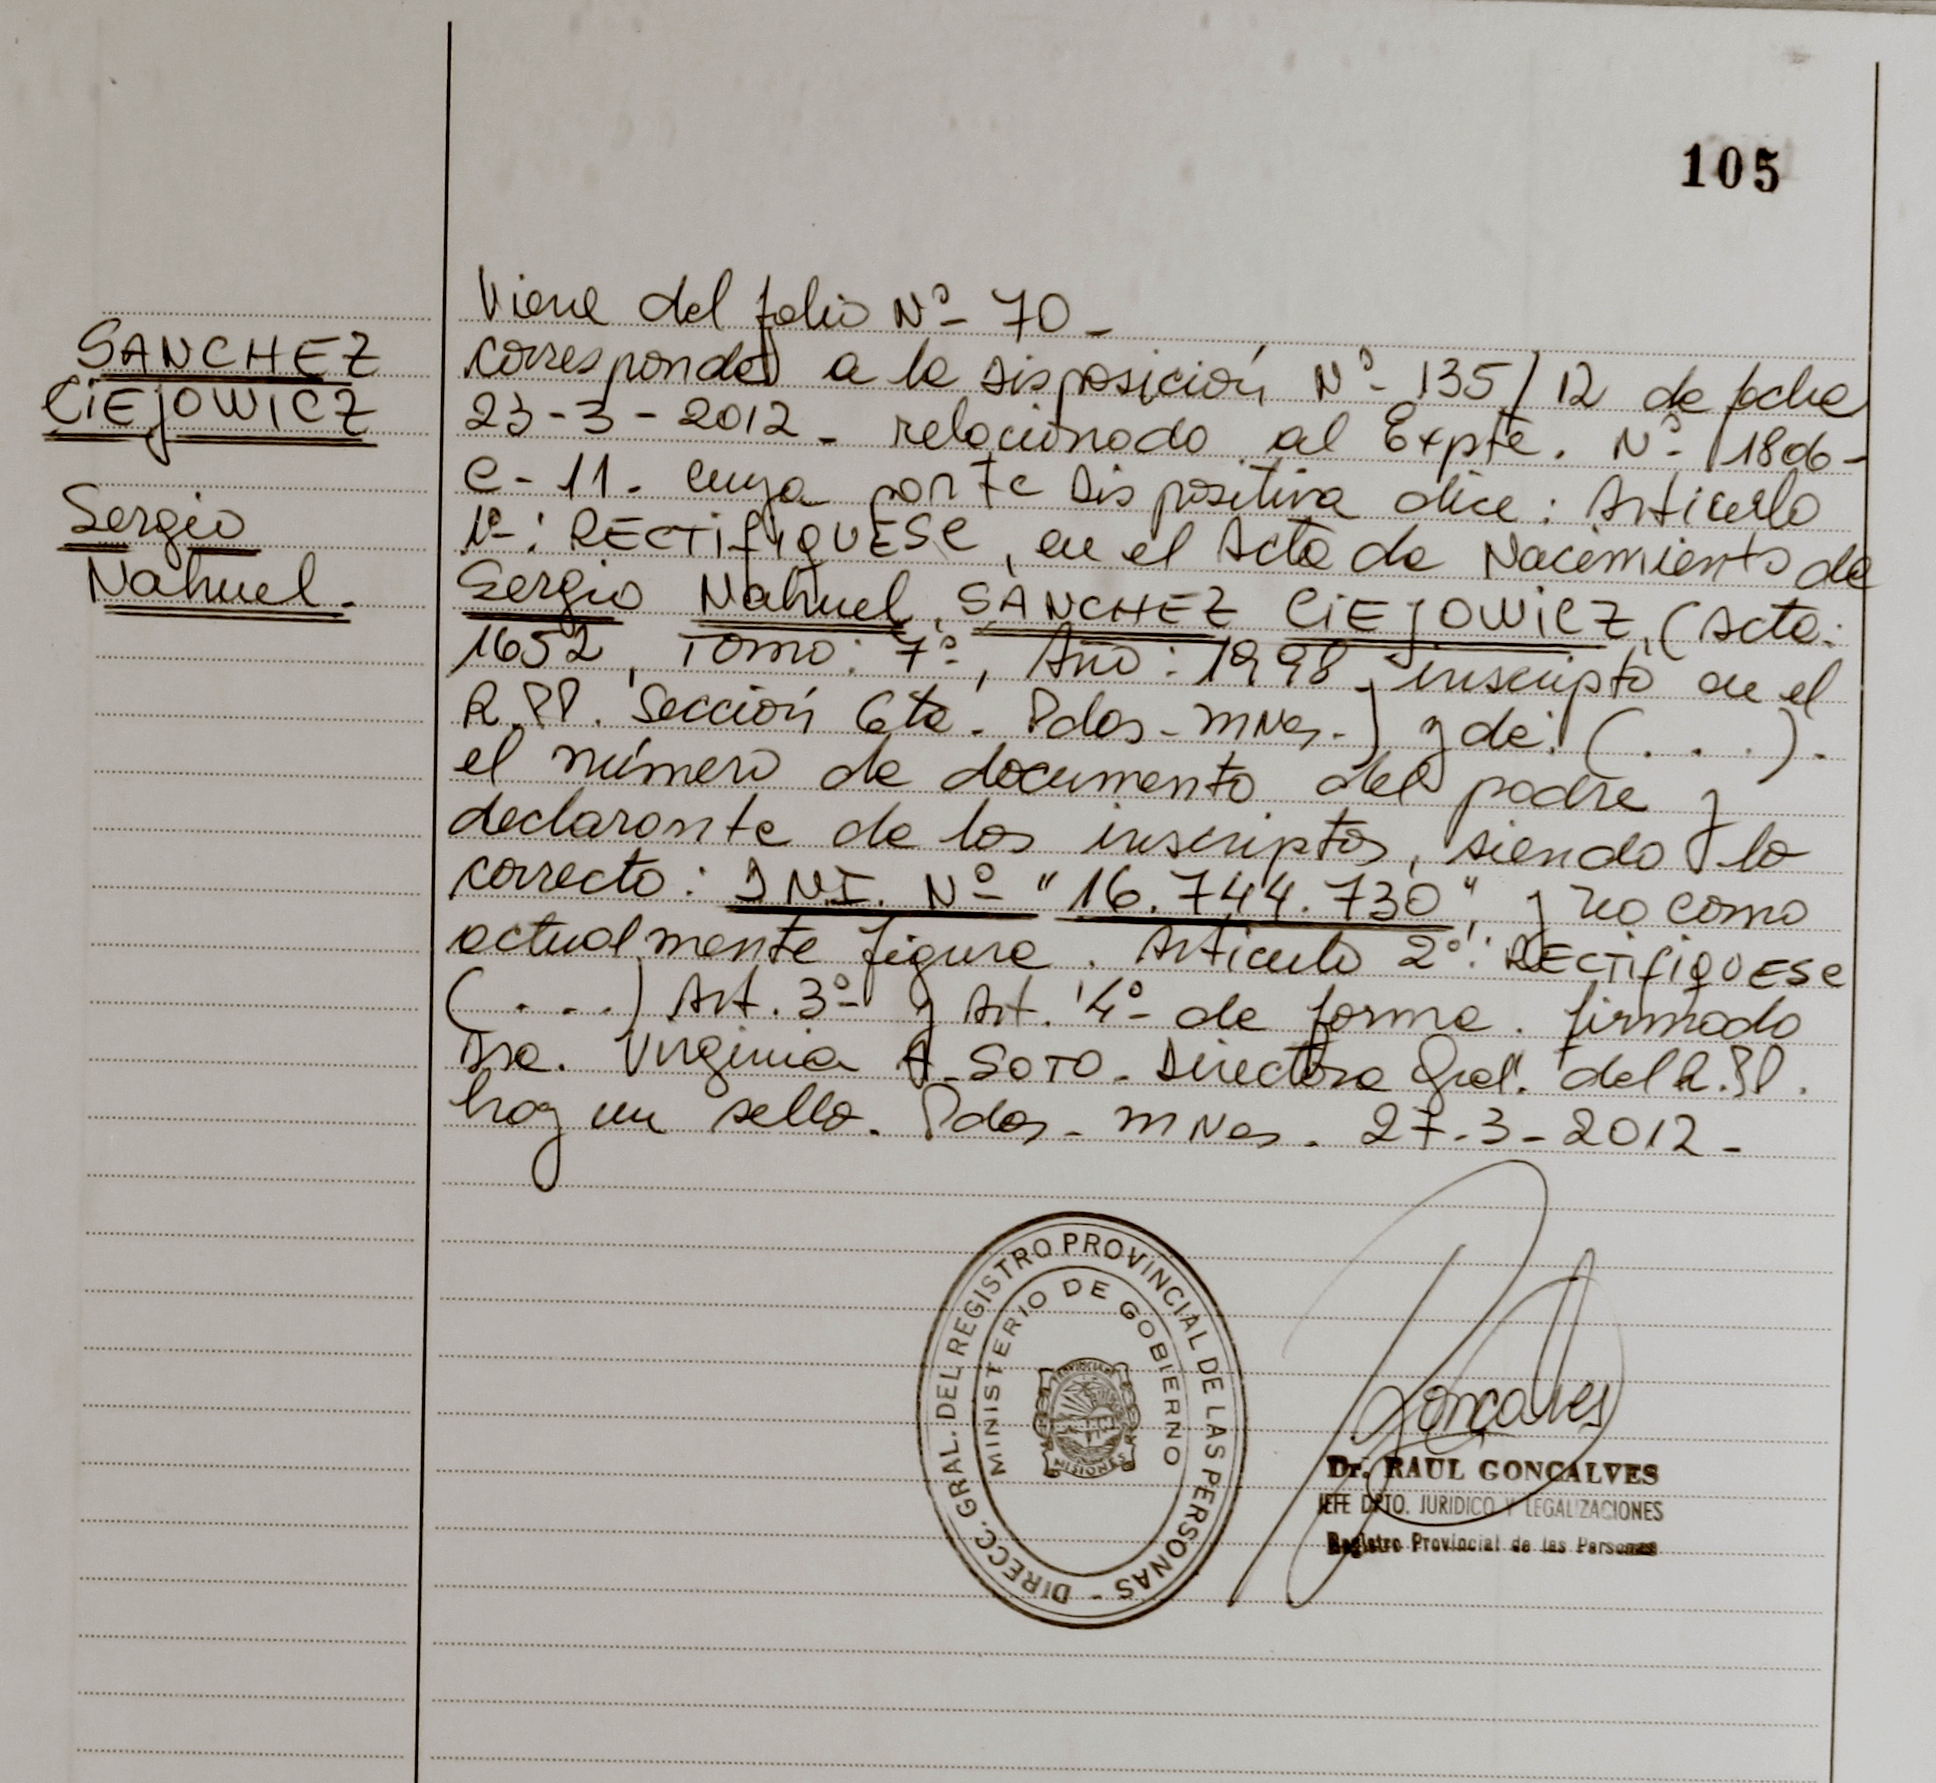 105
SANCHEZ
CIEJOWICZ
Sergio
Nahuel.
Viene del folio Nº 70 -
corresponde a la Disposición Nº 135/12 de fecha
23-3-2012 - relacionado al Expte. Nº 1806-
C-11. cuya parte Dispositiva dice: Articulo
1º: RECTIFIQUESE, en el Acta de Nacimiento de
Sergio Nahuel, SANCHEZ CIEJOWICZ, (Acta:
1652, Tomo: 7º, Año: 1998, inscripto en el
R.PP. Sección 6ta. Pdas - Mnes.) y de: (. . .) -
el número de documento del padre y
declarante de los inscriptos, siendo lo
correcto: D.N.I. Nº "16.744.730", y no como
actualmente figura. Articulo 2º: RECTIFIQUESE
(. . .) Art. 3º y Art. 4º de forma. firmado
Dra. Virginia A. SOTO - Directora Gral. del R.PP.
hay un sello. Pdas - Mnes. 27-3-2012 -
DIRECC. GRAL. DEL REGISTRO PROVINCIAL DE LAS PERSONAS -
MINISTERIO DE GOBIERNO
PROVINCIA
MISIONES
Goncalves
Dr. RAUL GONCALVES
JEFE DPTO. JURIDICO Y LEGALIZACIONES
Registro Provincial de las Personas